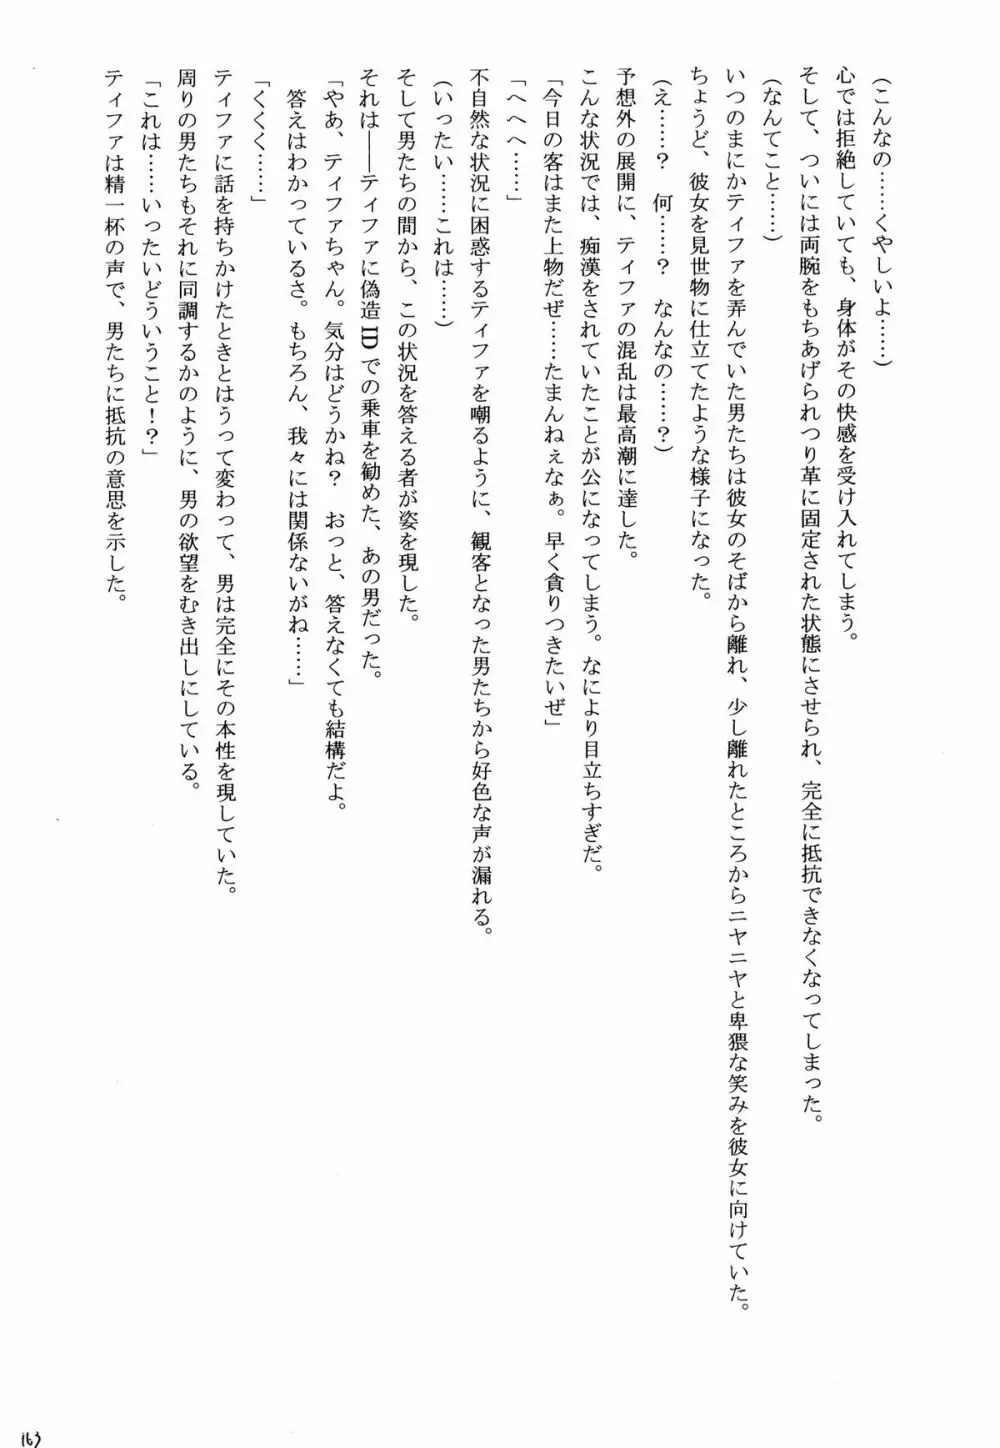 （こんなの……くやしいよ……）
心では拒絶していても、身体がその快感を受け入れてしまう。
そして、ついには両腕をもちあげられつり革に固定された状態にさせられ、完全に抵抗できなくなってしまった。
（なんてこと……）
いつのまにかティファを弄んでいた男たちは彼女のそばから離れ、少し離れたところからニヤニヤと卑猥な笑みを彼女に向けていた。
ちょうど、彼女を見世物に仕立てたような様子になった。
（え……？　何……？　なんなの……？）
予想外の展開に、ティファの混乱は最高潮に達した。
こんな状況では、痴漢をされていたことが公になってしまう。なにより目立ちすぎだ。
「今日の客はまた上物だぜ……たまんねぇなぁ。早く貪りつきたいぜ」
「へへへ……」
不自然な状況に困惑するティファを嘲るように、観客となった男たちから好色な声が漏れる。
（いったい……これは……）
そして男たちの間から、この状況を答える者が姿を現した。
それは――ティファに偽造IDでの乗車を勧めた、あの男だった。
「やあ、ティファちゃん。気分はどうかね？　おっと、答えなくても結構だよ。
答えはわかっているさ。もちろん、我々には関係ないがね……」
「くくく……」
ティファに話を持ちかけたときとはうって変わって、男は完全にその本性を現していた。
周りの男たちもそれに同調するかのように、男の欲望をむき出しにしている。
「これは……いったいどういうこと！？」
ティファは精一杯の声で、男たちに抵抗の意思を示した。
163